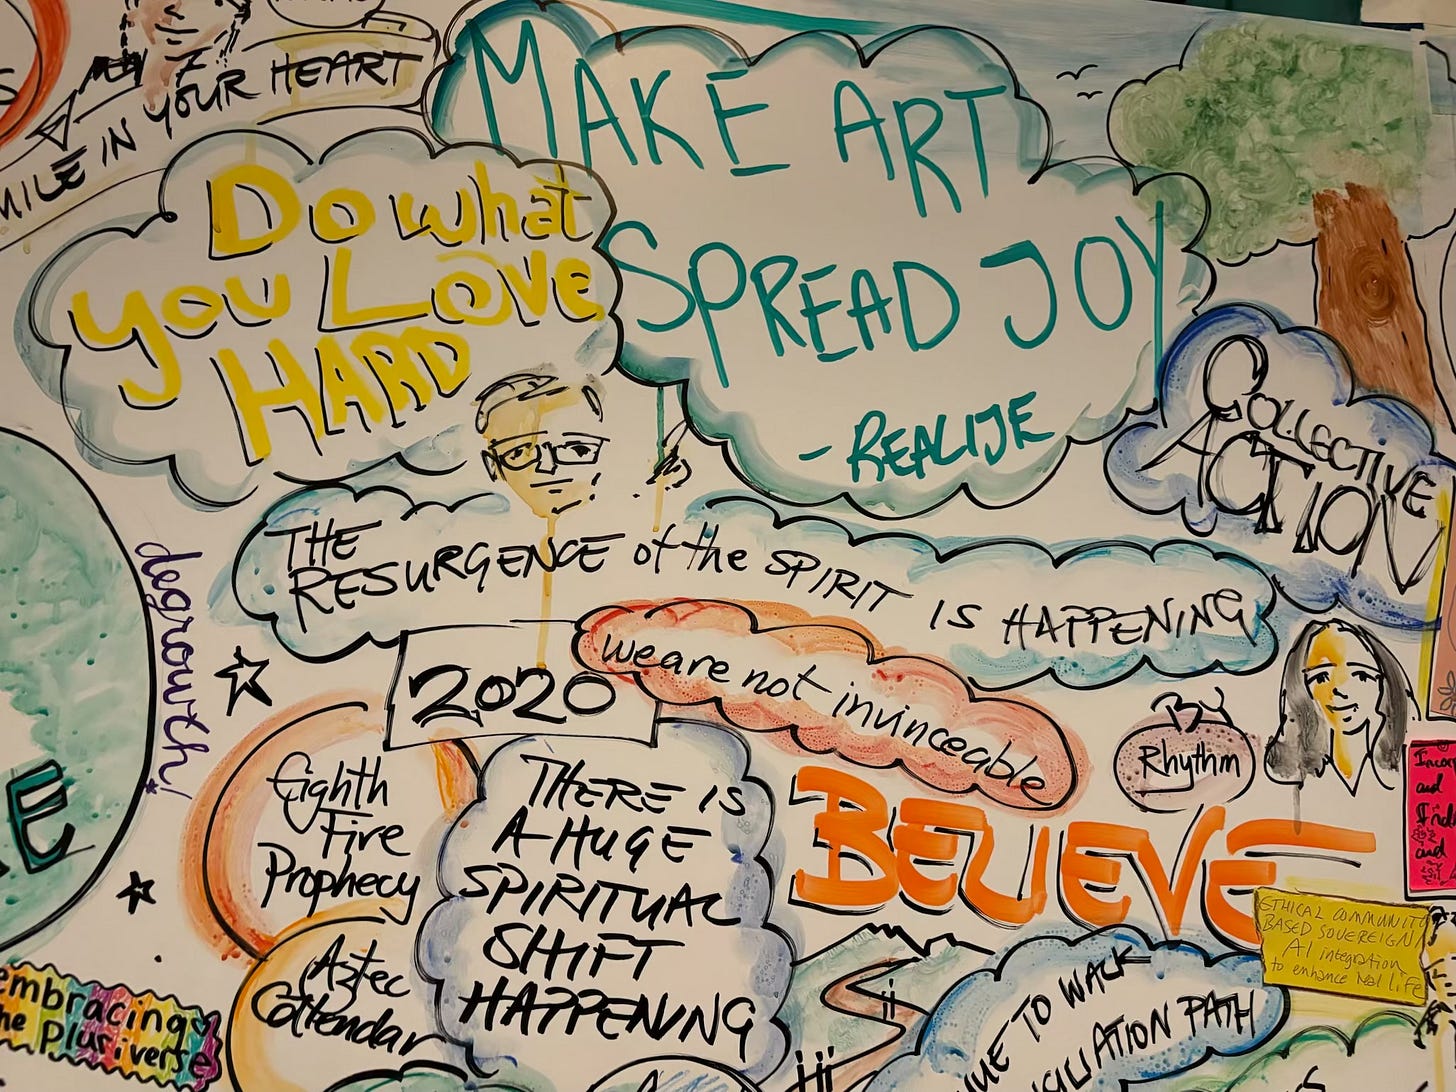 MILE IN YOUR HEART
MAKE ART
SPREAD JOY
- REALIJE
Do what
you LOVE
HARD
COLLECTIVE
ACTION
THE
RESURGENCE of the SPIRIT IS HAPPENING
degrowth!
2020
we are not invinceable
BY
Rhythm
Eighth
Fire
Prophecy
THERE IS
A HUGE
SPIRITUAL
SHIFT
HAPPENING
BELIEVE
Aztec
Callendar
embracing
the Pluriverse
ETHICAL COMMUNITY
BASED SOVEREIGN
AI integration
to enhance real life
TO WALK
PATH
and
and